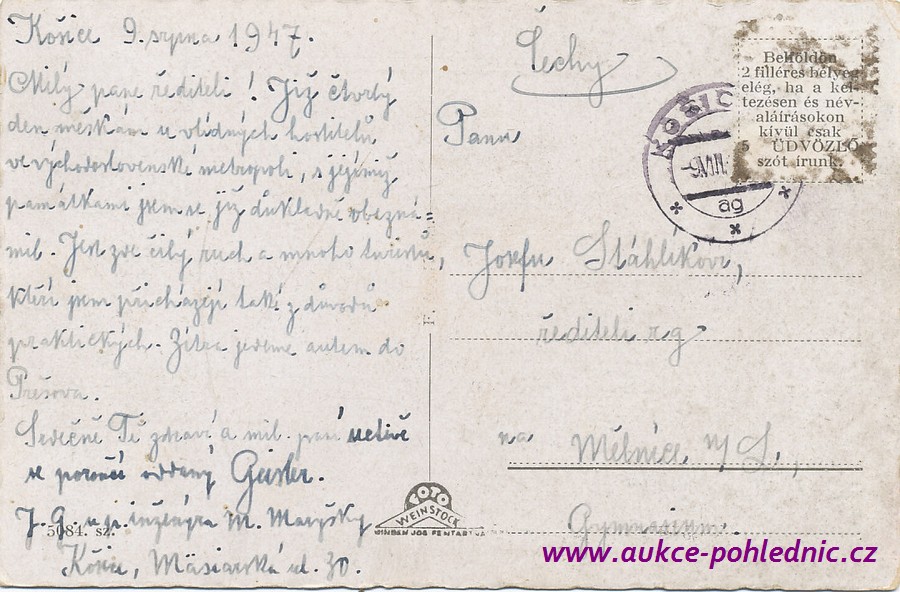 Košice 9. srpna 1947.
Milý pane řediteli! Již čtvrtý
den meškám u vlídných hostitelů
ve východoslovenské metropoli, s jejímiž
památkami jsem se již důkladně obezná=
mil. Jest zde čilý ruch a mnoho turistů,
kteří jsem přicházejí také z důvodů
praktických. Zítra jedeme autem do
Prešova.
Srdečně Tě zdraví a mil. paní uctivě
se poroučí oddaný Geisler.
J. G. u p. inženýra M. Maryšky
Košice, Mäsiarská ul. 30.
5084. sz.
COLO
WEINSTOCK
MINDEN JOG FENTARTVA
F.
Čechy
Panu
Josefu Stáhlíkovi,
řediteli rg
na Mělníce n/L.,
Gymnasium.
KOŠIC
-9.VIII.
ag
Belföldön
2 filléres bélyeg
elég, ha a kel-
tezésen és név-
aláírásokon
kívül csak
5 ÜDVÖZLŐ
szót írunk.
www.aukce-pohlednic.cz